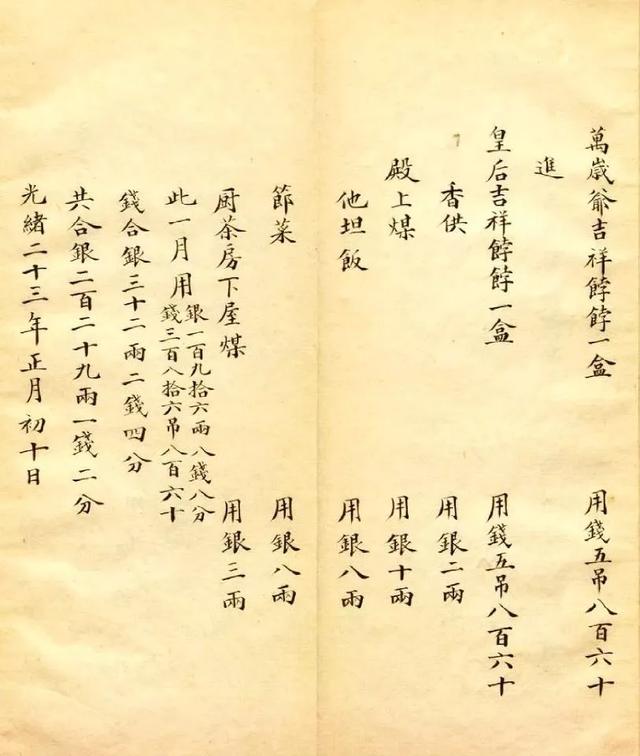 萬歲爺吉祥餑餑一盒 用錢五吊八百六十
進
皇后吉祥餑餑一盒 用錢五吊八百六十
香供 用銀二兩
殿上煤 用銀十兩
他坦飯 用銀八兩
節菜 用銀八兩
厨茶房下屋煤 用銀三兩
此一月用銀一百九拾六兩八錢八分
錢三百八拾六吊八百六十
錢合銀三十二兩二錢四分
共合銀二百二十九兩一錢二分
光緒二十三年正月初十日